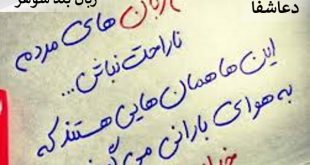 دعاشفا
زبان بند شوهر
زبان های مردم
ناراحت نباش...
این ها همان هایی هستند که
به هوای بارانی می گویند